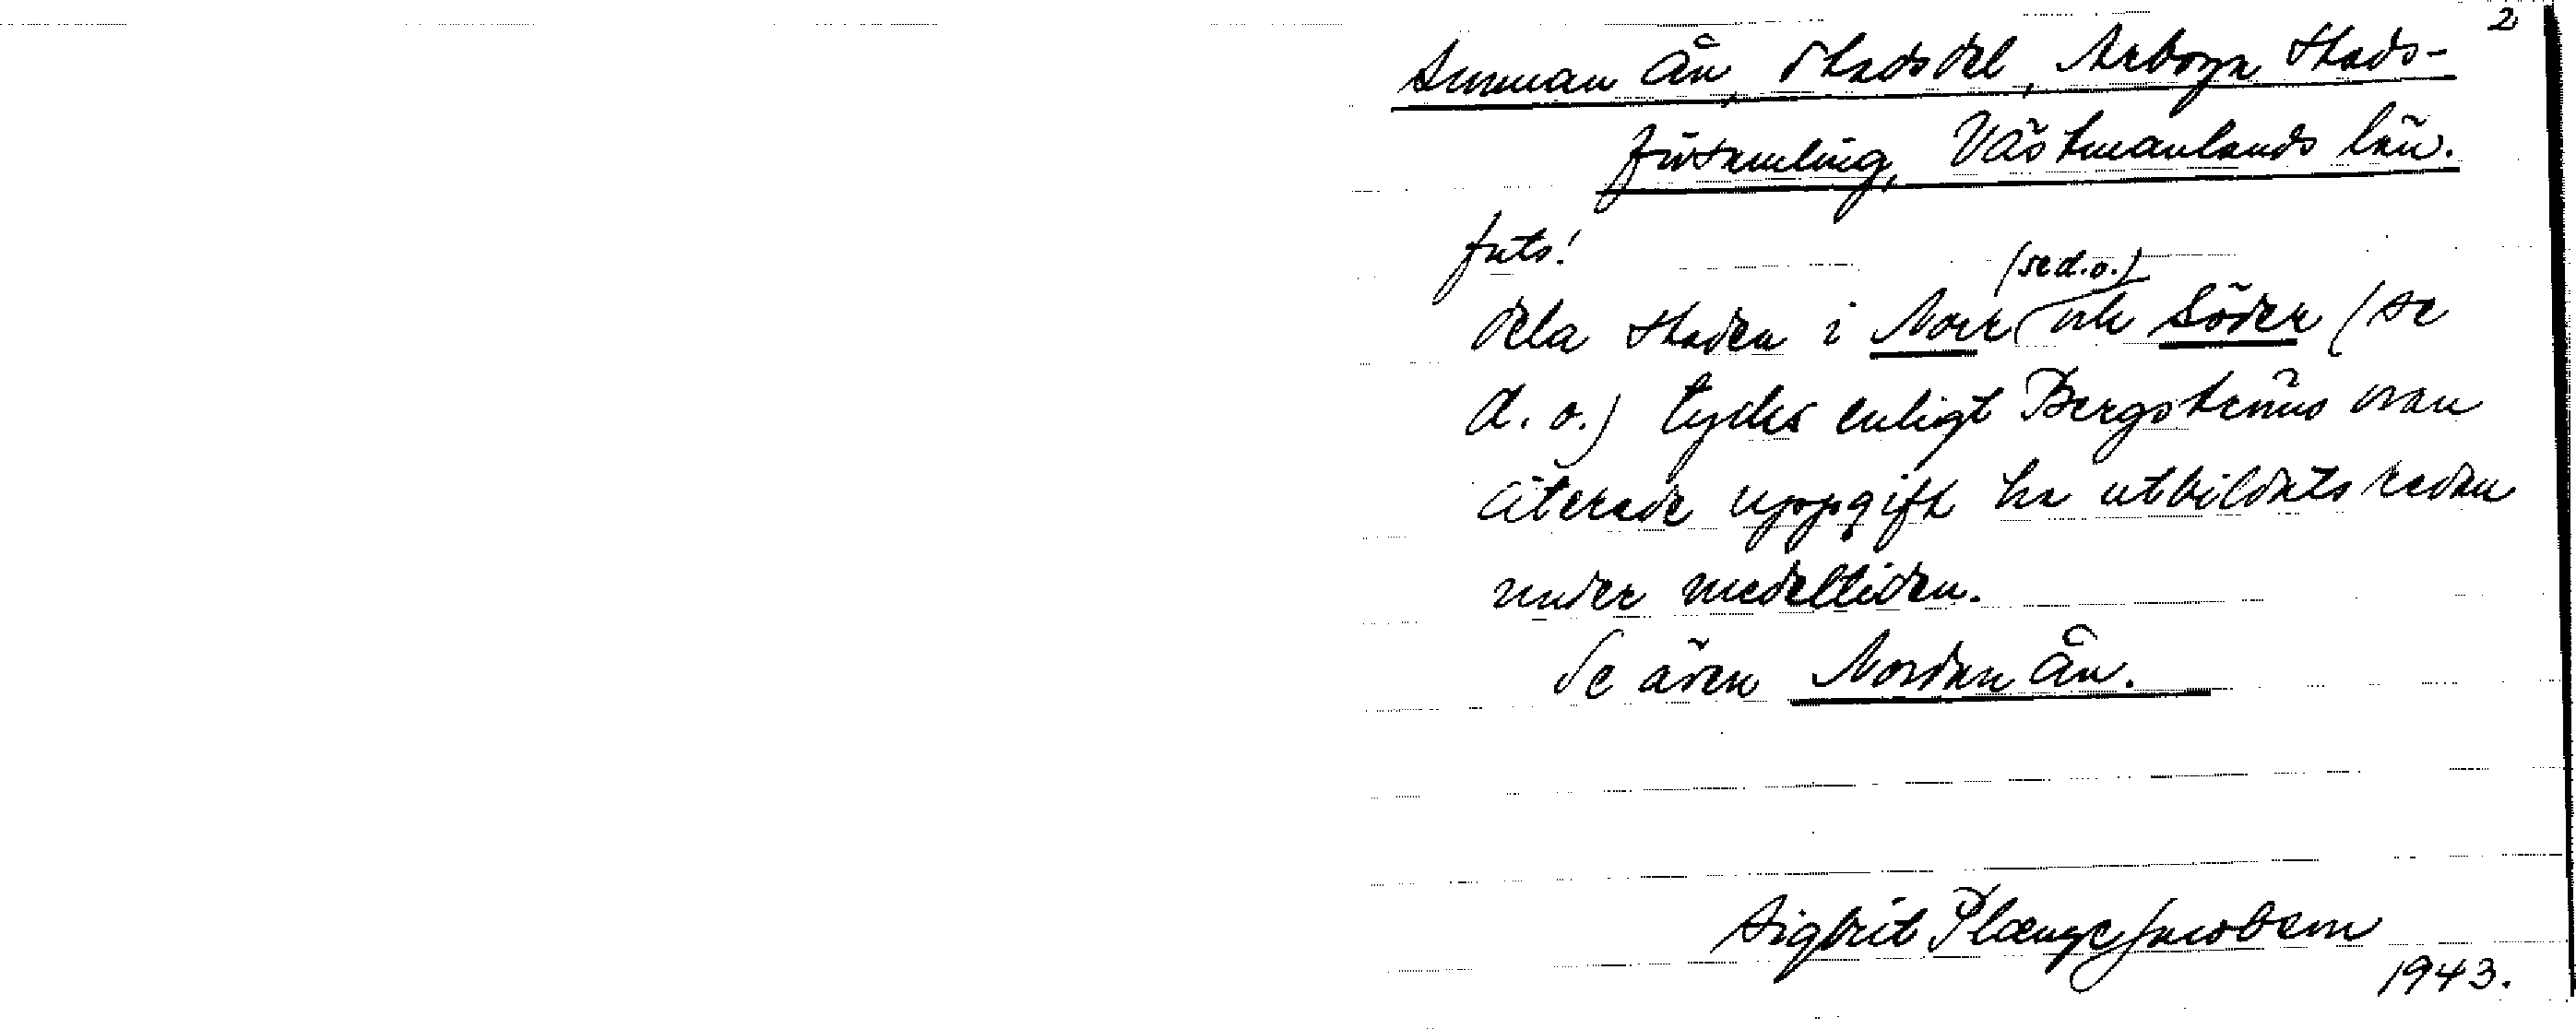 2
Sunnan Ån, Stadsdel, Arboga stads-
församling, Västmanlands län.
forts!
dela staden i Norr (se d.o.) och Söder (se
d. o.) tycks enligt Bergströms ovan
citerade uppgift ha utbildats redan
under medeltiden.
Se även Nordan Ån.
Sigbrit Plænge Jacobson
1943.